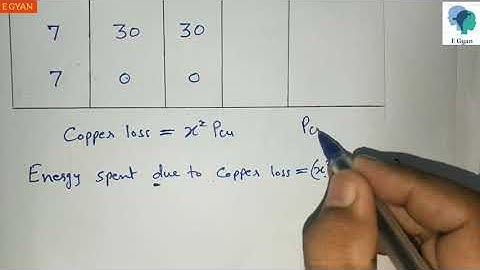 E GYAN
E Gyan
7 30 30
7 0 0
Copper loss = x² Pcu
Pcu
Energy spent due to copper loss = (x²